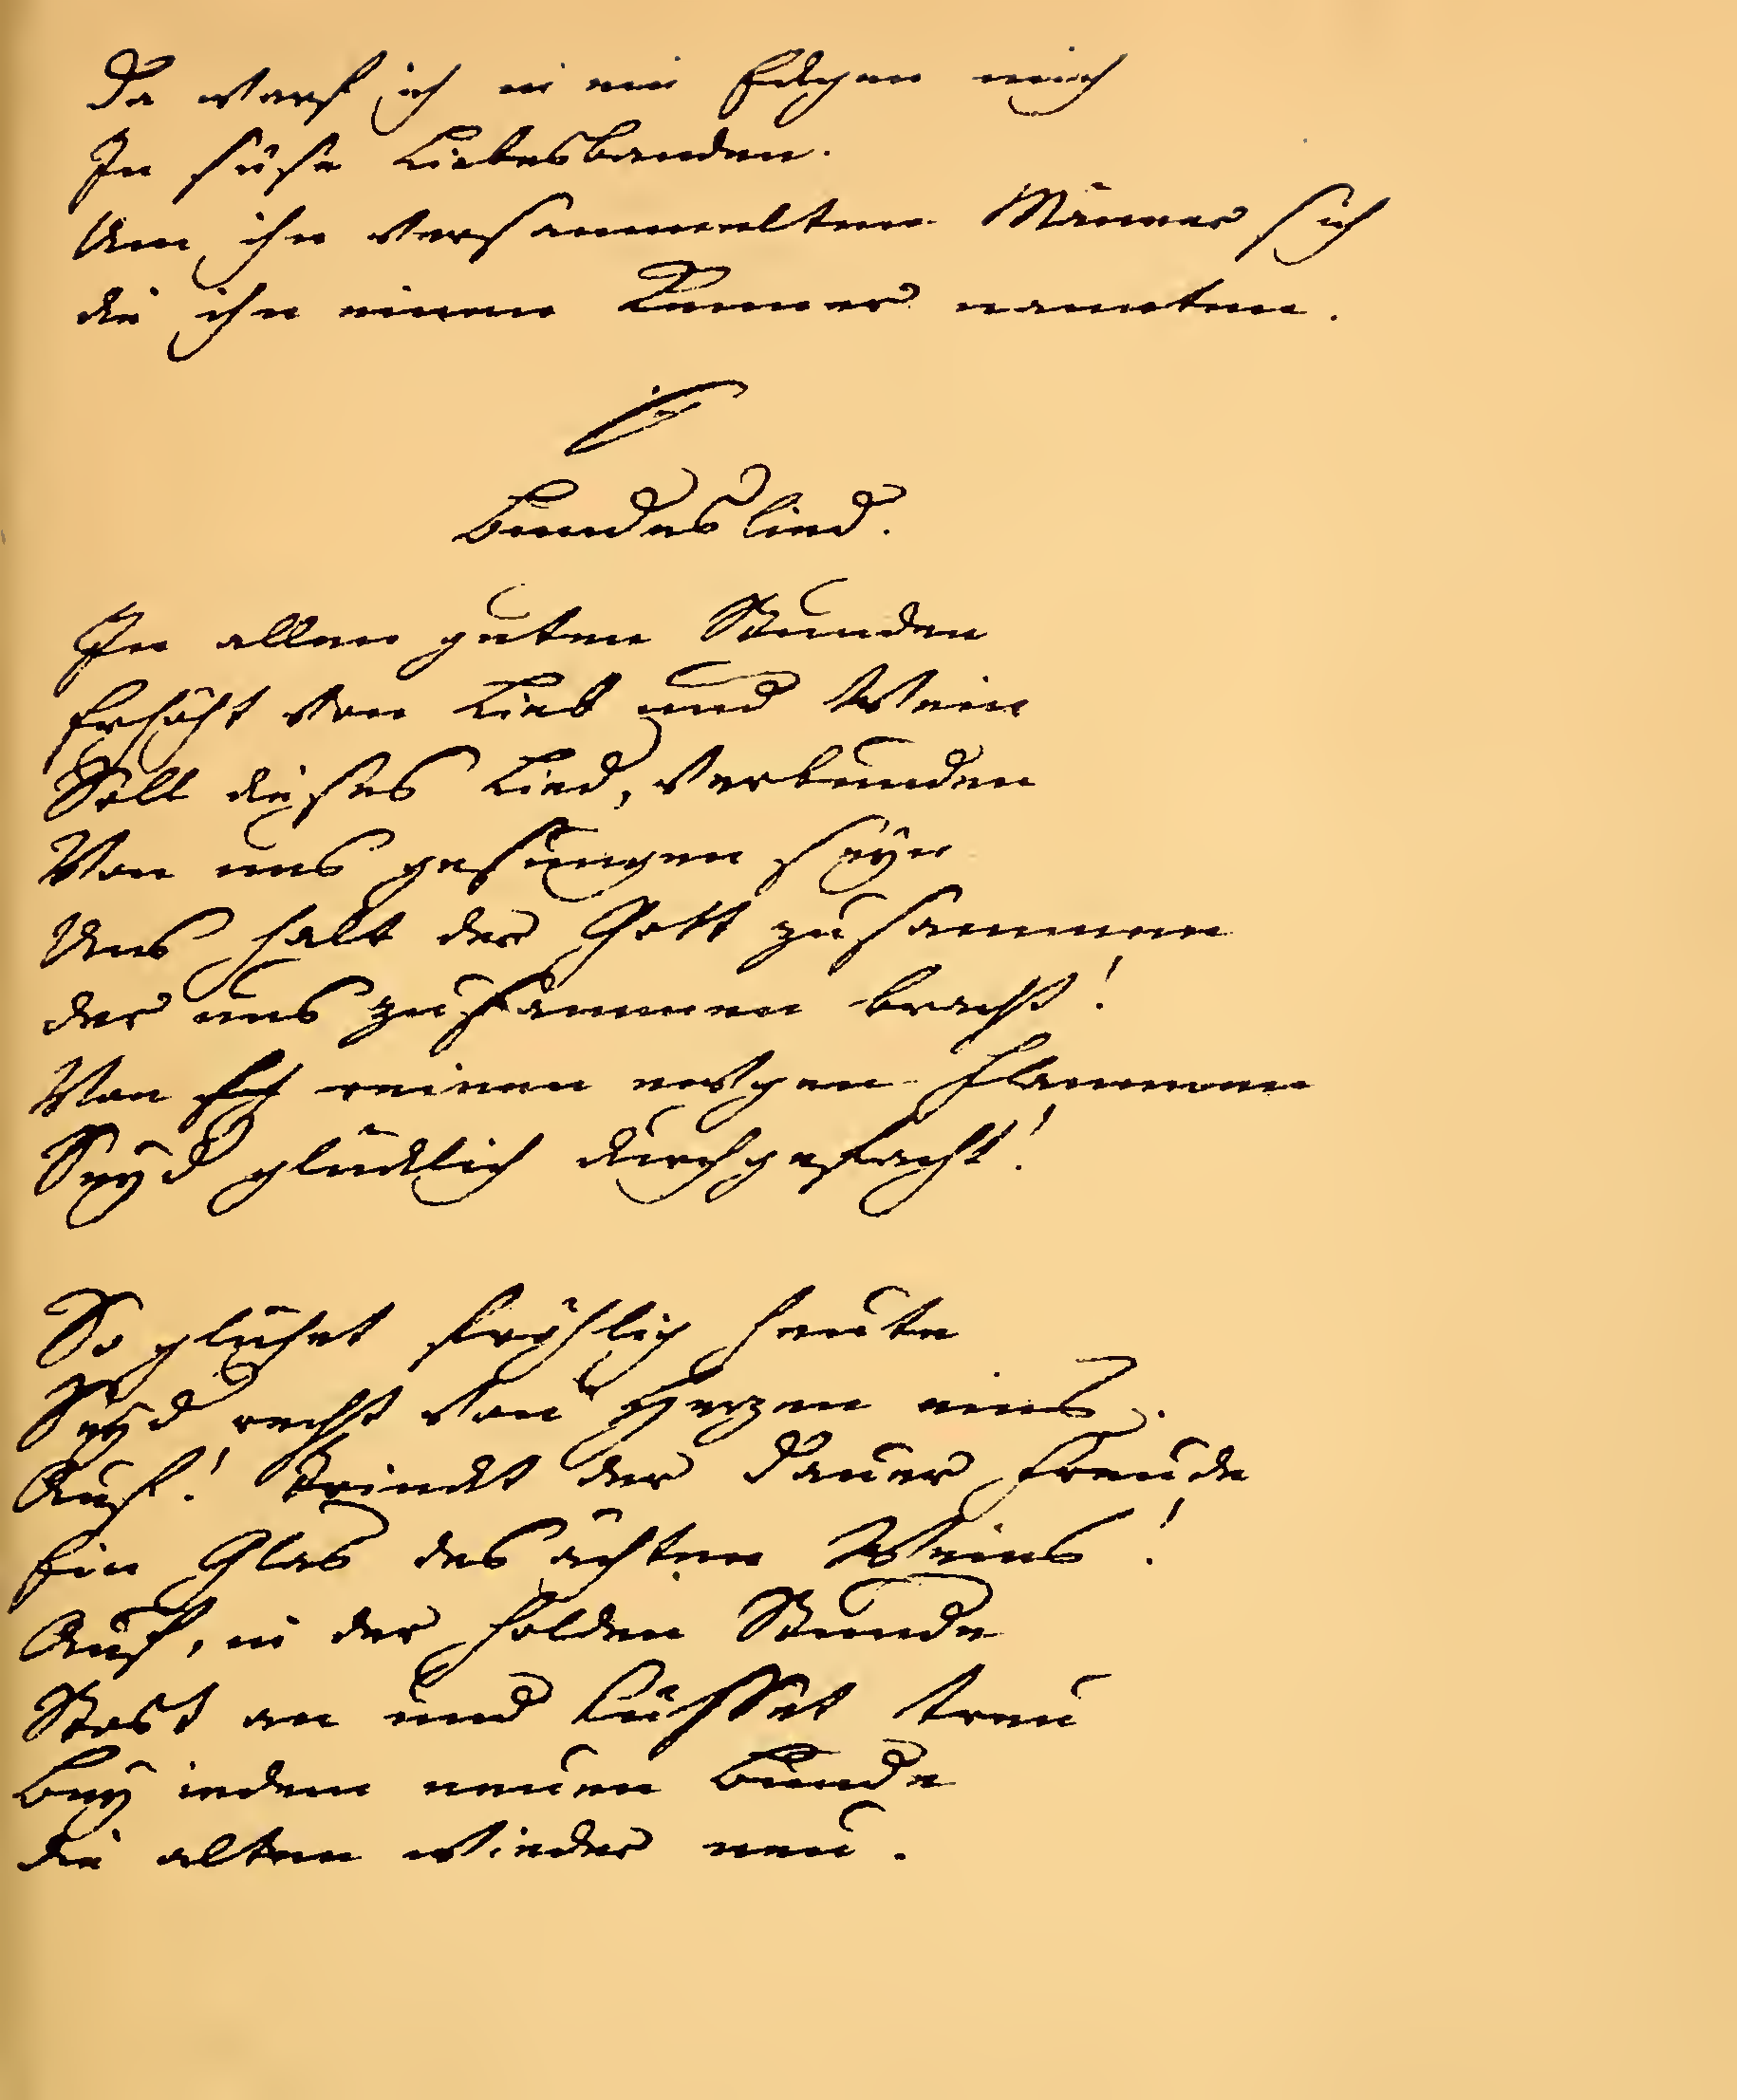 Da warf ich in ein Eckgen mich
In süse Liebesbanden.
Um ihn versammelten Männer sich
die ihn einen Kenner nannten.
Bundeslied.
In allen guten Stunden
Erhöht von Lieb und Wein
Soll dieses Lied, verbunden
Von uns gesungen seyn
Uns halt der Gott zusammen
der uns zusammen bracht!
Von reinen ewgen Flammen
Seyd glücklich durchgefacht!
So glühet fröhlig heute
Seyd recht von Herzen eins.
Auf! trinckt der Dauer Freude
Ein Glas des ächten Weins!
Auf, in der holden Stunde
Stost an und küsset treu
Bey iedem neuen Bunde
die alten wieder neu.